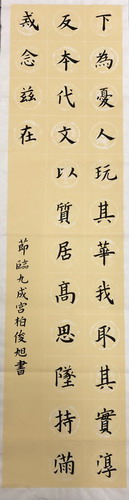 下為憂人玩其華我取其實淳
反本代文以質居高思墜持滿
戒念兹在
節臨九成宮柏俊旭書